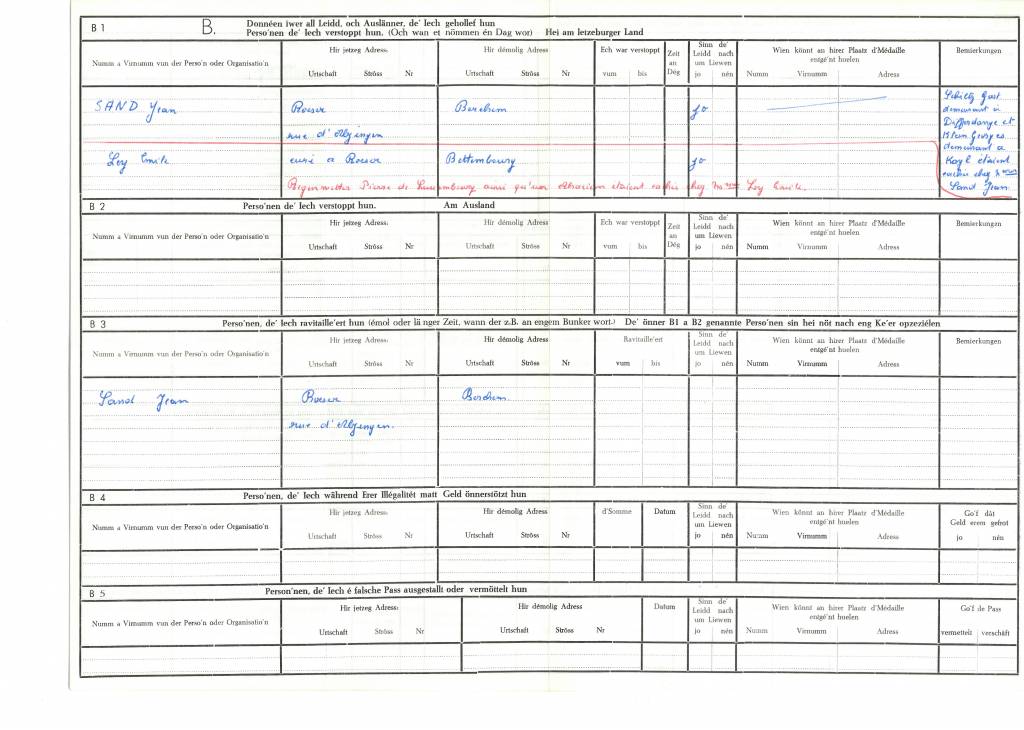 B 1 B. Donnéen iwer all Leidd, och Auslänner, de' Iech gehollef hun
Perso'nen de' Iech verstoppt hun. (Och wan et nömmen én Dag wor) Hei am letzeburger Land
Numm a Virnumm vun der Perso'n oder Organisatio'n
Hir jetzeg Adress:
Urtschaft Ströss Nr
Hir démolig Adress
Urtschaft Ströss Nr
Ech war verstoppt
vum bis
Zeit
an
Dég
Sinn de'
Leidd nach
um Liewen
jo nén
Wien könnt an hirer Plaatz d'Médaille
entgé'nt huelen
Numm Virnumm Adress
Bemierkungen
SAND Jean Roeser Berchem jo
rue d'Alzingen
Ley Emile curé a Roeser Bettembourg jo
Pierre de Luxembourg ainsi qu'un étaient chez Ley Emile.
Schiltz Gust
demeurant à
Differdange et
Klein Georges
demeurant a
Kayl étaient
cachés chez
Sand Jean
B 2 Perso'nen de' Iech verstoppt hun. Am Ausland
Numm a Virnumm vun der Perso'n oder Organisatio'n
Hir jetzeg Adress:
Urtschaft Ströss Nr
Hir démolig Adress
Urtschaft Ströss Nr
Ech war verstoppt
vum bis
Zeit
an
Dég
Sinn de'
Leidd nach
um Liewen
jo nén
Wien könnt an hirer Plaatz d'Médaille
entgé'nt huelen
Numm Virnumm Adress
Bemierkungen
B 3 Perso'nen, de' Iech ravitaille'ert hun (émol oder länger Zeit, wann der z.B. an engem Bunker wort.) De' önner B1 a B2 genannte Perso'nen sin hei nöt nach eng Ke'er opzeziélen
Numm a Virnumm vun der Perso'n oder Organisatio'n
Hir jetzeg Adress:
Urtschaft Ströss Nr
Hir démolig Adress
Urtschaft Ströss Nr
Ravitaille'ert
vum bis
Sinn de'
Leidd nach
um Liewen
jo nén
Wien könnt an hirer Plaatz d'Médaille
entgé'nt huelen
Numm Virnumm Adress
Bemierkungen
Sand Jean Roeser Berchem
rue d'Alzingen.
B 4 Perso'nen, de' Iech während Erer Illégalitét matt Geld önnerstötzt hun
Numm a Virnumm vun der Perso'n oder Organisatio'n
Hir jetzeg Adress:
Urtschaft Ströss Nr
Hir démolig Adress
Urtschaft Ströss Nr
d'Somme Datum
Sinn de'
Leidd nach
um Liewen
jo nén
Wien könnt an hirer Plaatz d'Médaille
entgé'nt huelen
Numm Virnumm Adress
Go'f dât
Geld erem gefrot
jo nén
B 5 Person'nen, de' Iech é falsche Pass ausgestallt oder vermöttelt hun
Numm a Virnumm vun der Perso'n oder Organisatio'n
Hir jetzeg Adress:
Urtschaft Ströss Nr
Hir démolig Adress
Urtschaft Ströss Nr
Datum
Sinn de'
Leidd nach
um Liewen
jo nén
Wien könnt an hirer Plaatz d'Médaille
entgé'nt huelen
Numm Virnumm Adress
Go'f de Pass
vermettelt verschäft